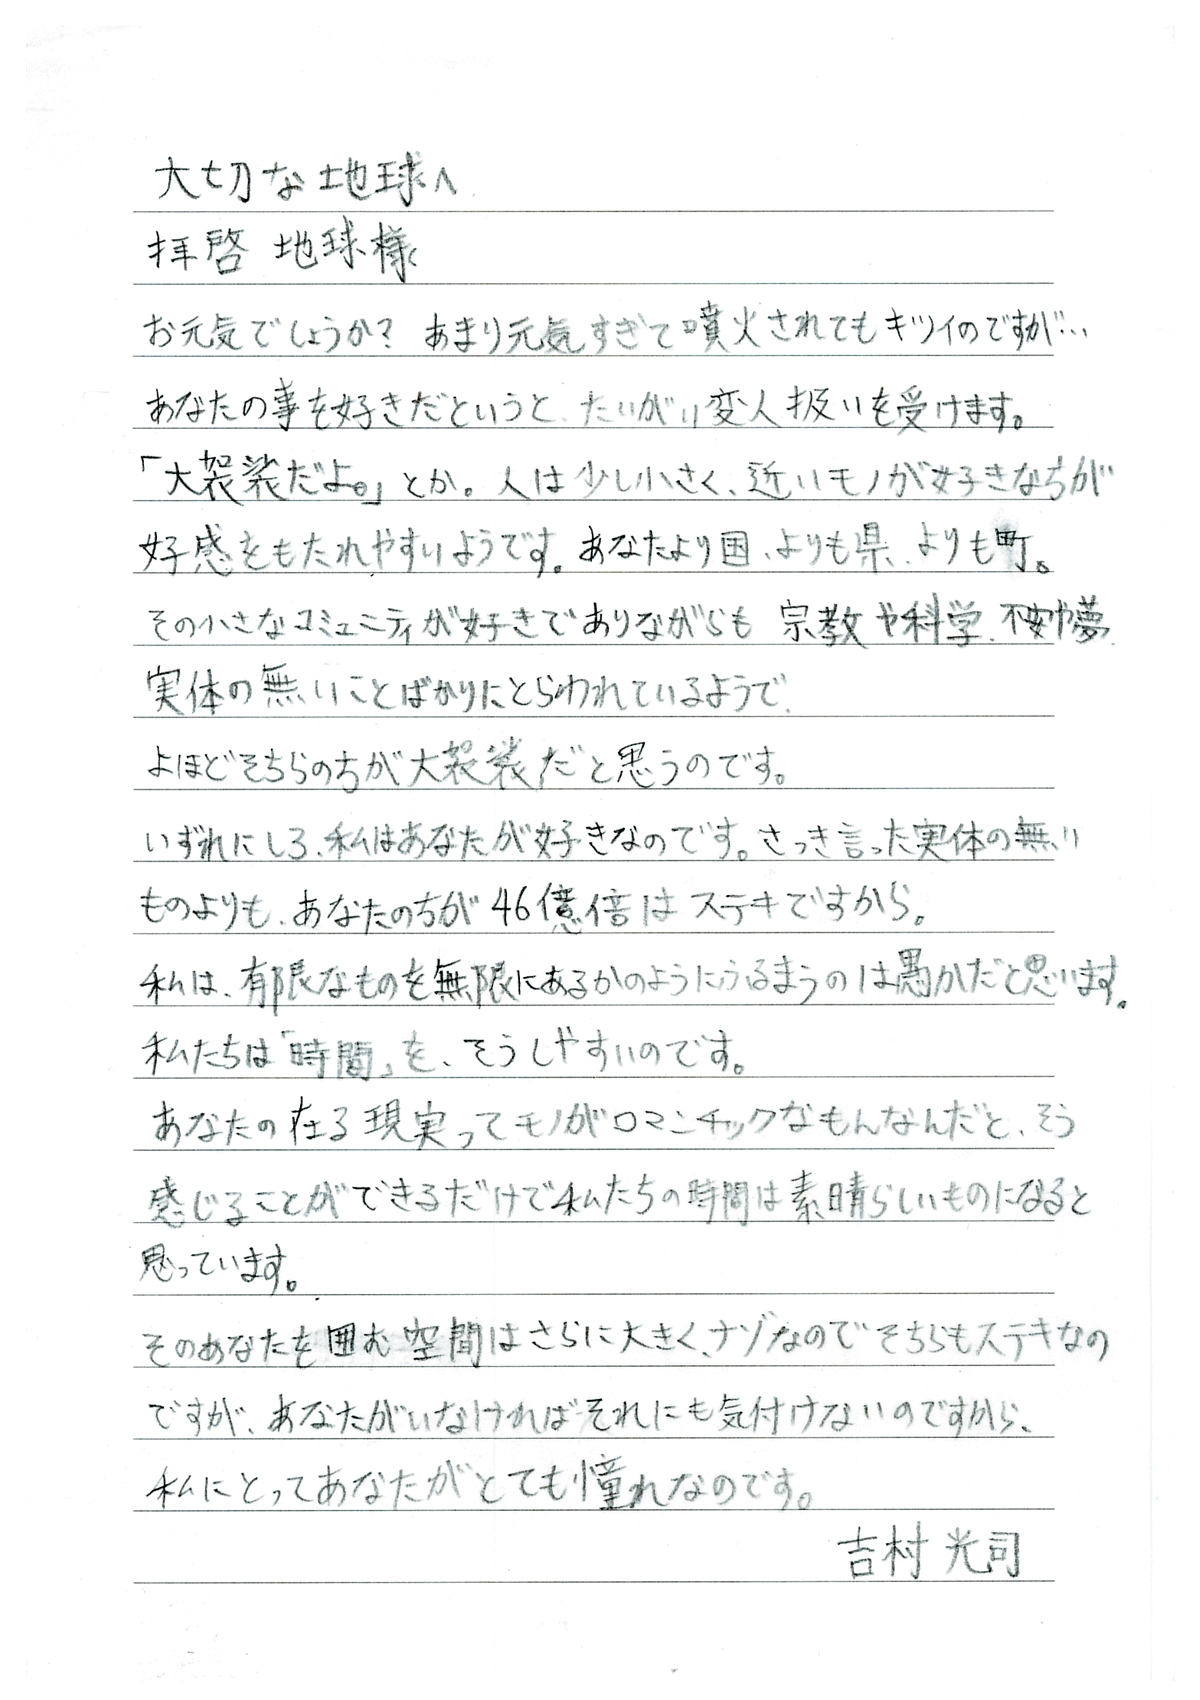 大切な地球へ
拝啓 地球様
お元気でしょうか? あまり元気すぎて噴火されてもキツイのですが…
あなたの事を好きだというと、たいがい変人扱いを受けます。
「大袈裟だよ。」とか。人は少し小さく、近いモノが好きな方が
好感をもたれやすいようです。あなたより国、よりも県、よりも町。
その小さなコミュニティが好きでありながらも 宗教や科学、不安や夢、
実体の無いことばかりにとらわれているようで、
よほどそちらの方が大袈裟だと思うのです。
いずれにしろ、私はあなたが好きなのです。さっき言った実体の無い
ものよりも、あなたの方が46億倍はステキですから。
私は、有限なものを無限にあるかのようにふるまうのは愚かだと思います。
私たちは「時間」を、そうしやすいのです。
あなたの在る現実ってモノがロマンチックなもんなんだと、そう
感じることができるだけで私たちの時間は素晴らしいものになると
思っています。
そのあなたを囲む空間はさらに大きく、ナゾなのでそちらもステキなの
ですが、あなたがいなければそれにも気付けないのですから、
私にとってあなたがとても憧れなのです。
吉村 光司